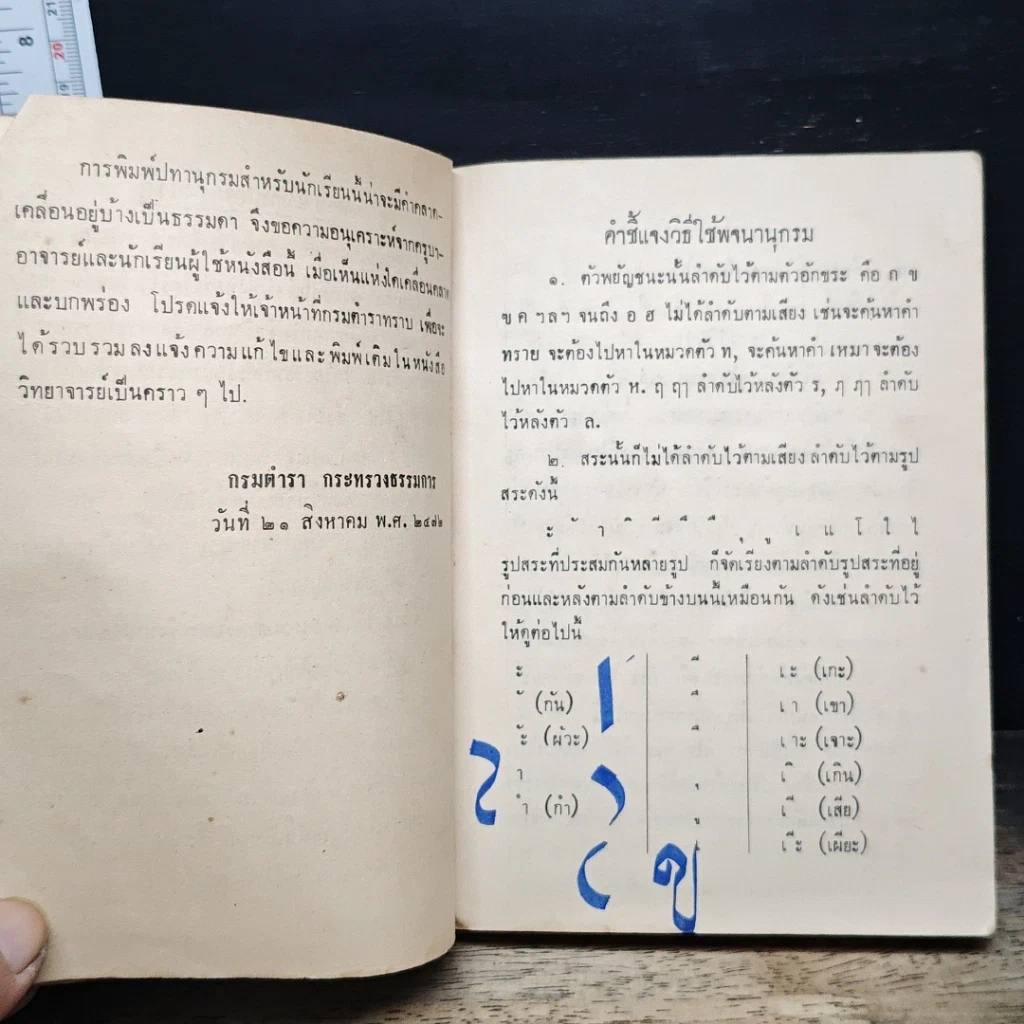 การพิมพ์ปทานุกรมสำหรับนักเรียนนี้น่าจะมีคำคลาด-
เคลื่อนอยู่บ้างเป็นธรรมดา จึงขอความอนุเคราะห์จากครูบา-
อาจารย์และนักเรียนผู้ใช้หนังสือนี้ เมื่อเห็นแห่งใดเคลื่อนคลาด
และบกพร่อง โปรดแจ้งให้เจ้าหน้าที่กรมตำราทราบ เพื่อจะ
ได้รวบรวมลงแจ้งความแก้ไขและพิมพ์เติมในหนังสือ
วิทยาจารย์เป็นคราว ๆ ไป.
กรมตำรา กระทรวงธรรมการ
วันที่ ๒๑ สิงหาคม พ.ศ. ๒๔๗๒
คำชี้แจงวิธีใช้พจนานุกรม
๑. ตัวพยัญชนะนั้นลำดับไว้ตามตัวอักขระ คือ ก ข
ฃ ค ฯลฯ จนถึง อ ฮ ไม่ได้ลำดับตามเสียง เช่นจะค้นหาคำ
ทราย จะต้องไปหาในหมวดตัว ท, จะค้นหาคำ เหมา จะต้อง
ไปหาในหมวดตัว ห. ฤ ฤๅ ลำดับไว้หลังตัว ร, ฦ ฦๅ ลำดับ
ไว้หลังตัว ล.
๒. สระนั้นก็ไม่ได้ลำดับไว้ตามเสียง ลำดับไว้ตามรูป
สระดังนี้
ะ ั า ิ ี ึ ื ุ ู เ แ โ ใ ไ
รูปสระที่ประสมกันหลายรูป ก็จัดเรียงตามลำดับรูปสระที่อยู่
ก่อนและหลังตามลำดับข้างบนนี้เหมือนกัน ดังเช่นลำดับไว้
ให้ดูต่อไปนี้
ะ ี เ ะ (เกะ)
ั (กัน) ึ เ า (เขา)
ั ะ (ผัวะ) ื เ าะ (เจาะ)
า ุ เ ิ (เกิน)
ำ (กำ) ู เ ี (เสีย)
เ ี ะ (เผียะ)
8
21
20
19